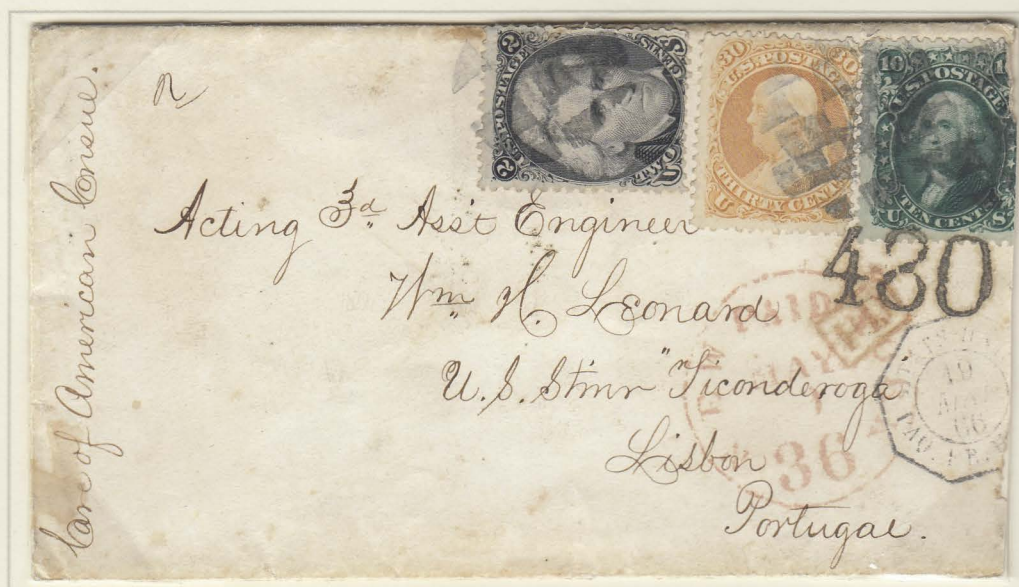 Care of American Consul.
U.S. POSTAGE
2 2
TWO CENTS
30 30
U.S. POSTAGE
THIRTY CENTS
U
10
U.S. POSTAGE
U TEN CENTS S
Acting 3d. Ass't Engineer
Wm. H. Leonard
U.S. Stmr "Ticonderoga"
Lisbon
Portugal.
480
PAID
MAR
36
PD
19
66
PAQ. FR.